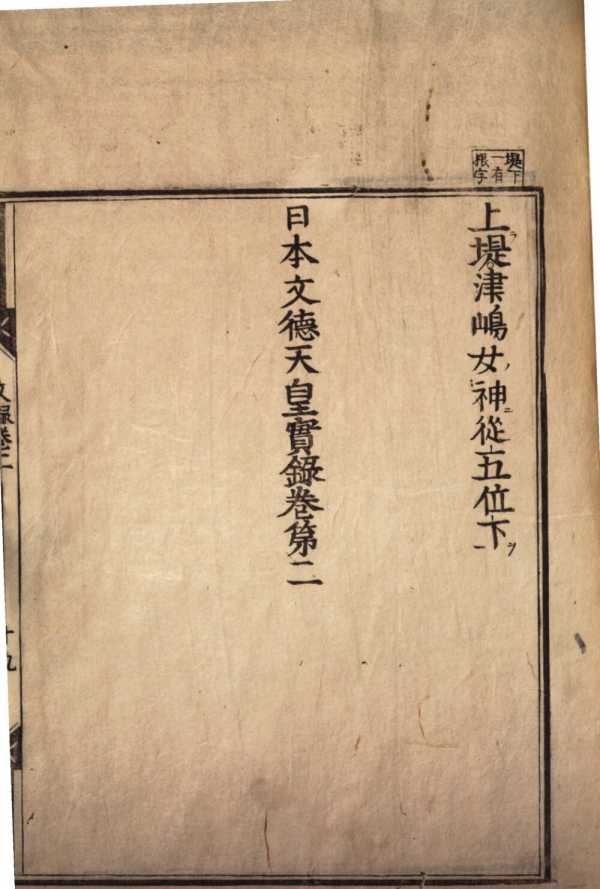 堤下
一有
根字
上堤津嶋女神從五位下
日本文德天皇實錄卷第二
文録卷二
十九